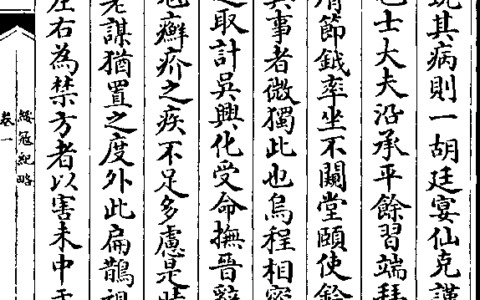 其病則一胡廷宴仙克謹
士大夫沿承平餘習端拜
節鉞率坐不闚堂頤使
其事者微獨此也烏程相密
取計吳興化受命撫晉辭
癬疥之疾不足多慮是時
老謀猶置之度外此扁鵲
左右為禁方者以害未中
綏冦紀略
卷一